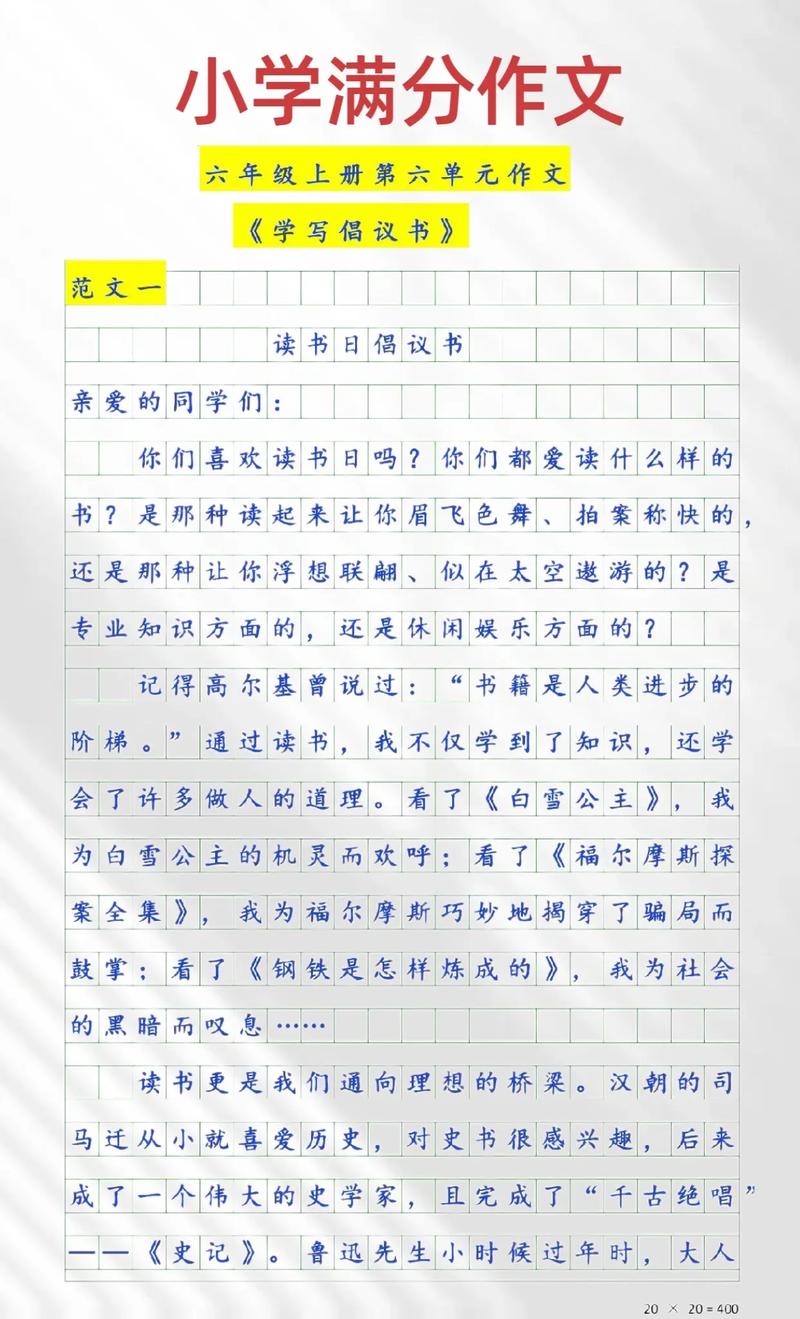 小学满分作文
六年级上册第六单元作文
《学写倡议书》
范文一
读书日倡议书
亲爱的同学们：
你们喜欢读书日吗？你们都爱读什么样的
书？是那种读起来让你眉飞色舞、拍案称快的，
还是那种让你浮想联翩、似在太空遨游的？是
专业知识方面的，还是休闲娱乐方面的？
记得高尔基曾说过：“书籍是人类进步的
阶梯。”通过读书，我不仅学到了知识，还学
会了许多做人的道理。看了《白雪公主》，我
为白雪公主的机灵而欢呼；看了《福尔摩斯探
案全集》，我为福尔摩斯巧妙地揭穿了骗局而
鼓掌；看了《钢铁是怎样炼成的》，我为社会
的黑暗而叹息……
读书更是我们通向理想的桥梁。汉朝的司
马迁从小就喜爱历史，对史书很感兴趣，后来
成了一个伟大的史学家，且完成了“千古绝唱”
——《史记》。鲁迅先生小时候过年时，大人
20 × 20 = 400